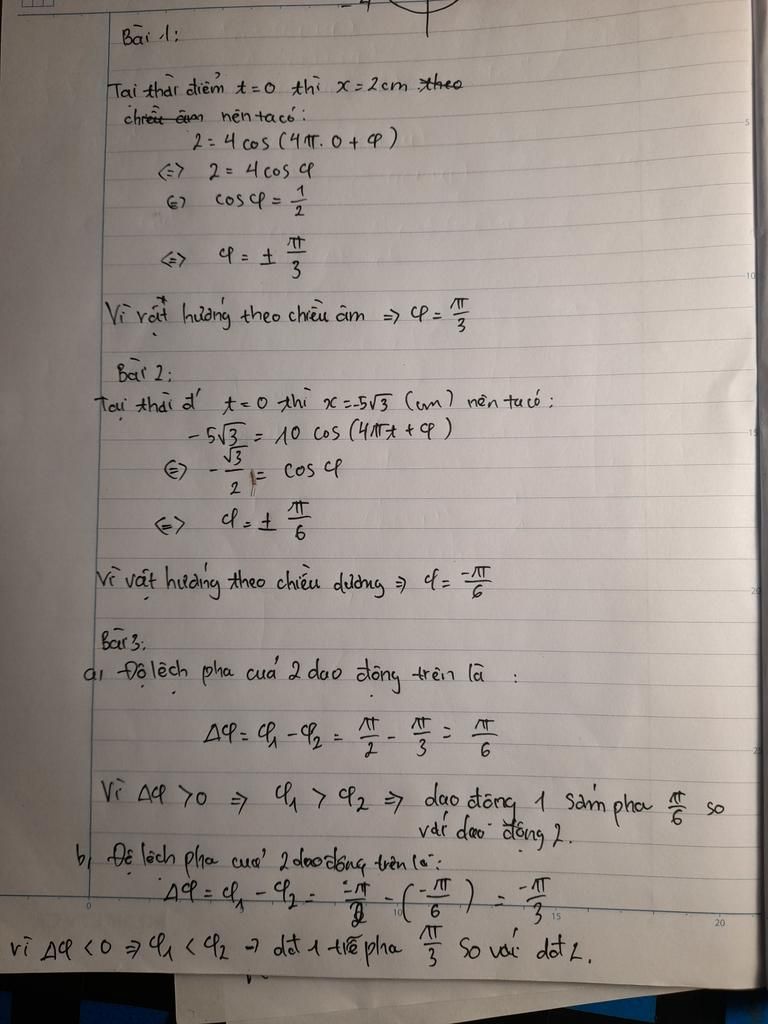 Bài 1:
Tại thời điểm t=0 thì x=2cm theo
chiều âm nên ta có:
2 = 4 cos (4π. 0 + φ)
<=> 2 = 4 cos φ
<=> cos φ = 1/2
<=> φ = ± π/3
Vì vật hướng theo chiều âm => φ = π/3
Bài 2:
Tại thời đ' t=0 thì x=-5√3 (cm) nên ta có:
-5√3 = 10 cos (4πt + φ)
<=> -√3/2 = cos φ
<=> φ = ± π/6
Vì vật hướng theo chiều dương => φ = -π/6
Bài 3:
a, Độ lệch pha cuả 2 dao động trên là :
Δφ = φ₁ - φ₂ = π/2 - π/3 = π/6
Vì Δφ > 0 => φ₁ > φ₂ => dao động 1 sớm pha π/6 so
với dao động 2.
b, Độ lệch pha cuả 2 dao động trên là:
Δφ = φ₁ - φ₂ = -π/2 - (-π/6) = -π/3
vì Δφ < 0 => φ₁ < φ₂ -> dđ 1 trễ pha π/3 so với dđ 2.